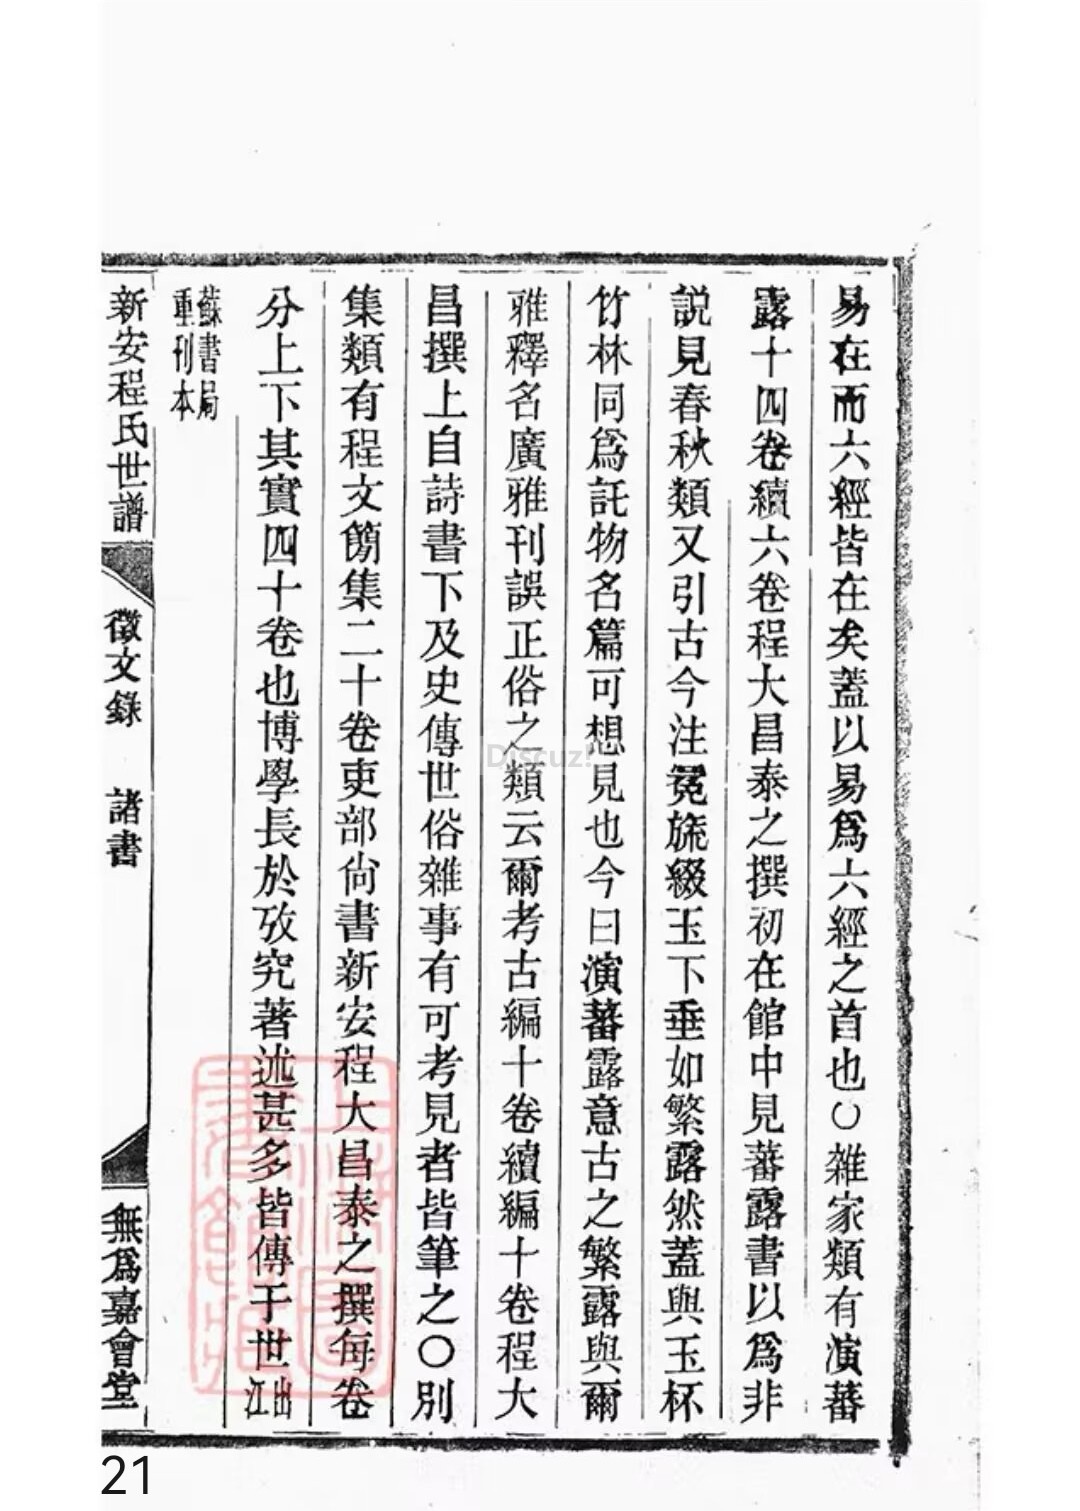 易在而六經皆在矣蓋以易爲六經之首也○雜家類有演蕃
露十四卷續六卷程大昌泰之撰初在館中見蕃露書以爲非
説見春秋類又引古今注冕旒綴玉下垂如繁露然蓋與玉杯
竹林同爲託物名篇可想見也今曰演蕃露意古之繁露與爾
雅釋名廣雅刊誤正俗之類云爾考古編十卷續編十卷程大
昌撰上自詩書下及史傳世俗雜事有可考見者皆筆之○別
集類有程文簡集二十卷吏部尙書新安程大昌泰之撰每卷
分上下其實四十卷也博學長於攷究著述甚多皆傳于世出江
蘇書局
重刊本
新安程氏世譜 徵文錄 諸書 無爲嘉會堂
Discuz!
21